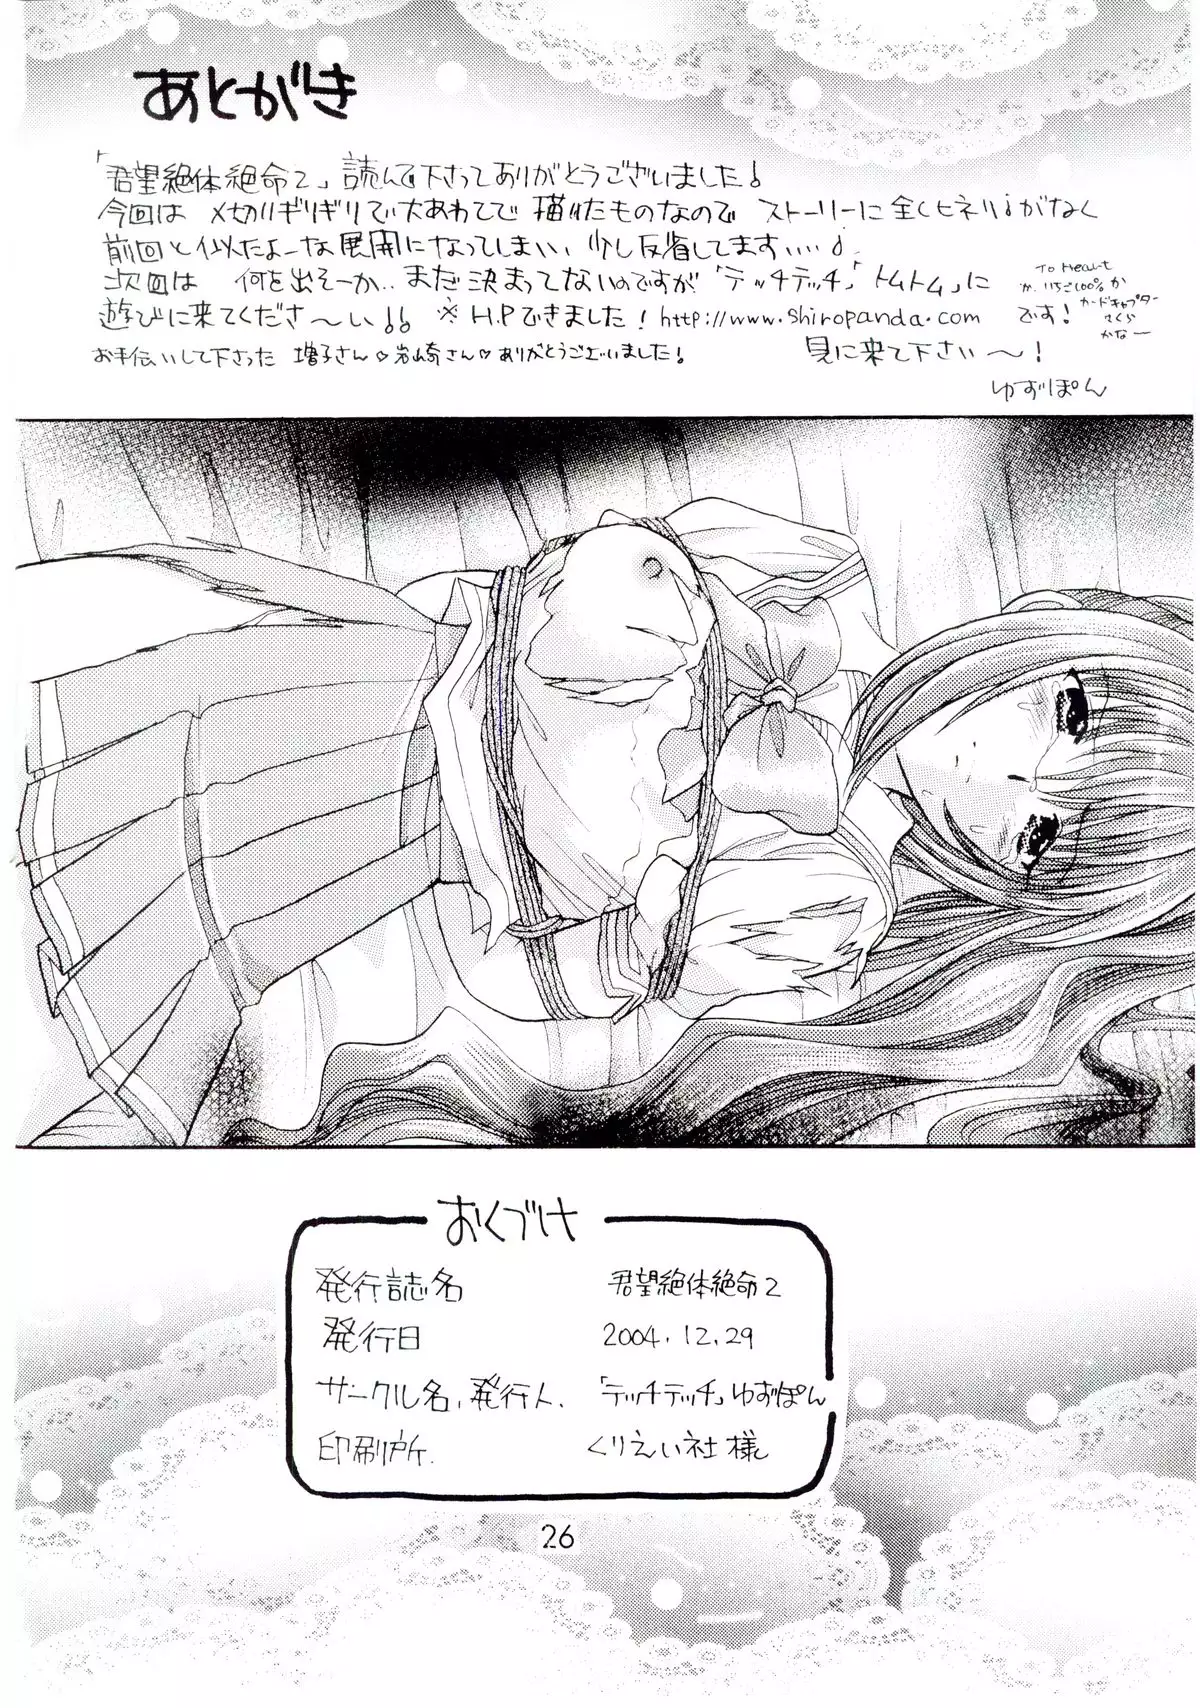 あとがき
「君望絶体絶命2」読んで下さってありがとうございました!
今回は〆切りギリギリで大あわてで描いたものなので ストーリーに全くヒネリがなく
前回と似たよーな展開になってしまい、少し反省してます…。
次回は 何を出そーか..まだ決まってないのですが「テッチテッチ」「トムトム」に
To Heart
か、いちご100%か
カードキャプター
さくら
かなー
遊びに来てくださ〜い!! ※H.Pできました!http://www.shiropanda.com です!
お手伝いして下さった 増子さん♡岩崎さん♡ありがとうございました! 見に来て下さい〜!
ゆずぽん
おくづけ
発行誌名 君望絶体絶命2
発行日 2004.12.29
サークル名、発行人. 「テッチテッチ」ゆずぽん
印刷所. くりえい社様
26